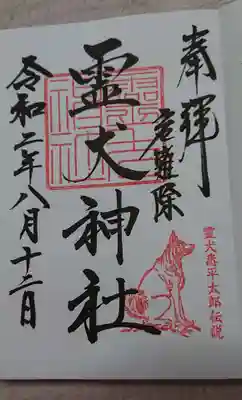 奉拝
厄難除
霊犬神社
令和二年八月十二日
霊犬悉平太郎伝説